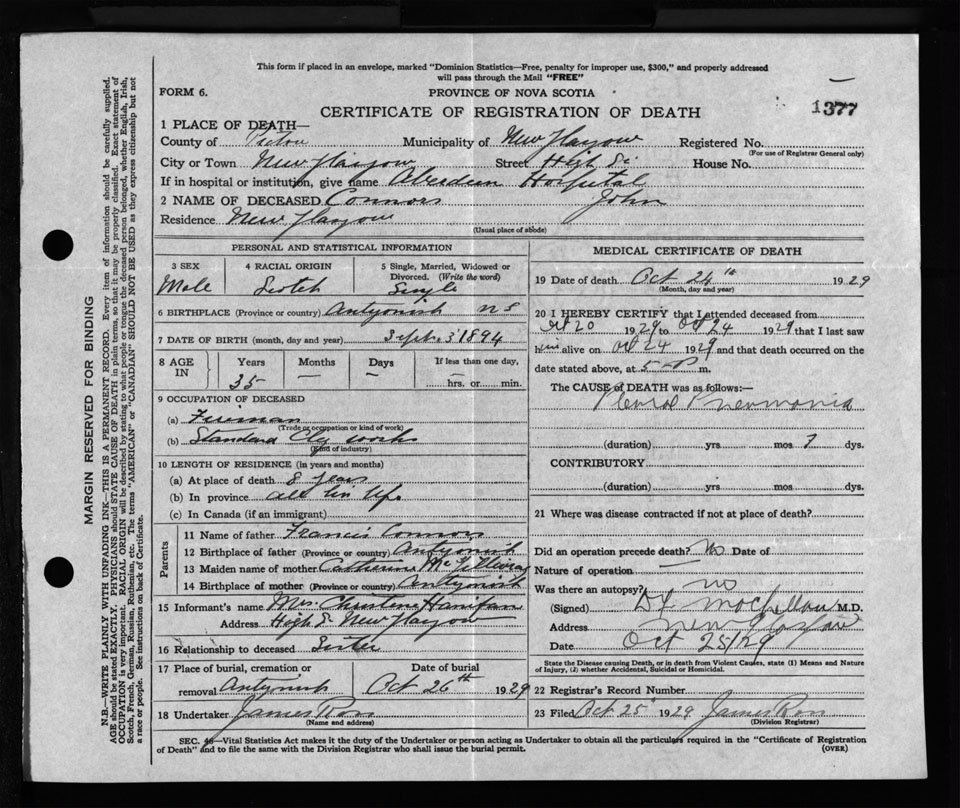 This form if placed in an envelope, marked "Dominion Statistics—Free, penalty for improper use, $300," and properly addressed
will pass through the Mail "FREE"
FORM 6.
PROVINCE OF NOVA SCOTIA
1377
CERTIFICATE OF REGISTRATION OF DEATH
1 PLACE OF DEATH—
County of Pictou Municipality of New Glasgow Registered No.
(For use of Registrar General only)
City or Town New Glasgow Street High St House No.
If in hospital or institution, give name Aberdeen Hospital
2 NAME OF DECEASED Connors John
Residence New Glasgow
(Usual place of abode)
PERSONAL AND STATISTICAL INFORMATION
3 SEX
Male
4 RACIAL ORIGIN
Scotch
5 Single, Married, Widowed or
Divorced. (Write the word)
Single
6 BIRTHPLACE (Province or country) Antigonish N S
7 DATE OF BIRTH (month, day and year) Sept. 5 1894
8 AGE IN
Years Months Days If less than one day,
35 — — hrs. or min.
9 OCCUPATION OF DECEASED
(a) Fireman
(Trade or occupation or kind of work)
(b) Standard Clay works
(Kind of industry)
10 LENGTH OF RESIDENCE (in years and months)
(a) At place of death 8 years
(b) In province all his life
(c) In Canada (if an immigrant)
Parents
11 Name of father Francis Connors
12 Birthplace of father (Province or country) Antigonish
13 Maiden name of mother Catherine McGillivray
14 Birthplace of mother (Province or country) Antigonish
15 Informant's name Mrs. Christene Hanifan
Address High St New Glasgow
16 Relationship to deceased Sister
17 Place of burial, cremation or Date of burial
removal Antigonish Oct 26th 1929
18 Undertaker James Ross
(Name and address)
MEDICAL CERTIFICATE OF DEATH
19 Date of death Oct 24th 1929
(Month, day and year)
20 I HEREBY CERTIFY that I attended deceased from
Oct 20 1929 to Oct 24 1929 that I last saw
him alive on Oct 24 1929 and that death occurred on the
date stated above, at 5 P m.
The CAUSE OF DEATH was as follows:—
Pleural Pneumonia
(duration) yrs mos 7 dys.
CONTRIBUTORY
(duration) yrs. mos. dys.
21 Where was disease contracted if not at place of death?
Did an operation precede death? No Date of
Nature of operation —
Was there an autopsy? no
(Signed) M.D.
Address New Glasgow
Date Oct 25/29
State the Disease causing Death, or in death from Violent Causes, state (1) Means and Nature
of Injury, (2) whether Accidental, Suicidal or Homicidal.
22 Registrar's Record Number
23 Filed Oct 25 1929 James Ross
(Division Registrar)
SEC. 4 —Vital Statistics Act makes it the duty of the Undertaker or person acting as Undertaker to obtain all the particulars required in the "Certificate of Registration
of Death" and to file the same with the Division Registrar who shall issue the burial permit.
(OVER)
MARGIN RESERVED FOR BINDING
N.B.—WRITE PLAINLY WITH UNFADING INK—THIS IS A PERMANENT RECORD. Every item of information should be carefully supplied.
AGE should be stated EXACTLY. PHYSICIANS should STATE CAUSE OF DEATH in plain terms, so that it may be properly classified. Exact statement of
OCCUPATION is very important. RACIAL ORIGIN will be described by stating to what people or tongue the deceased person belonged, whether English, Irish,
Scotch, French, German, Russian, Ruthenian, etc. The terms "AMERICAN" or "CANADIAN" SHOULD NOT BE USED as they express citizenship but not
a race or people. See instructions on back of Certificate.